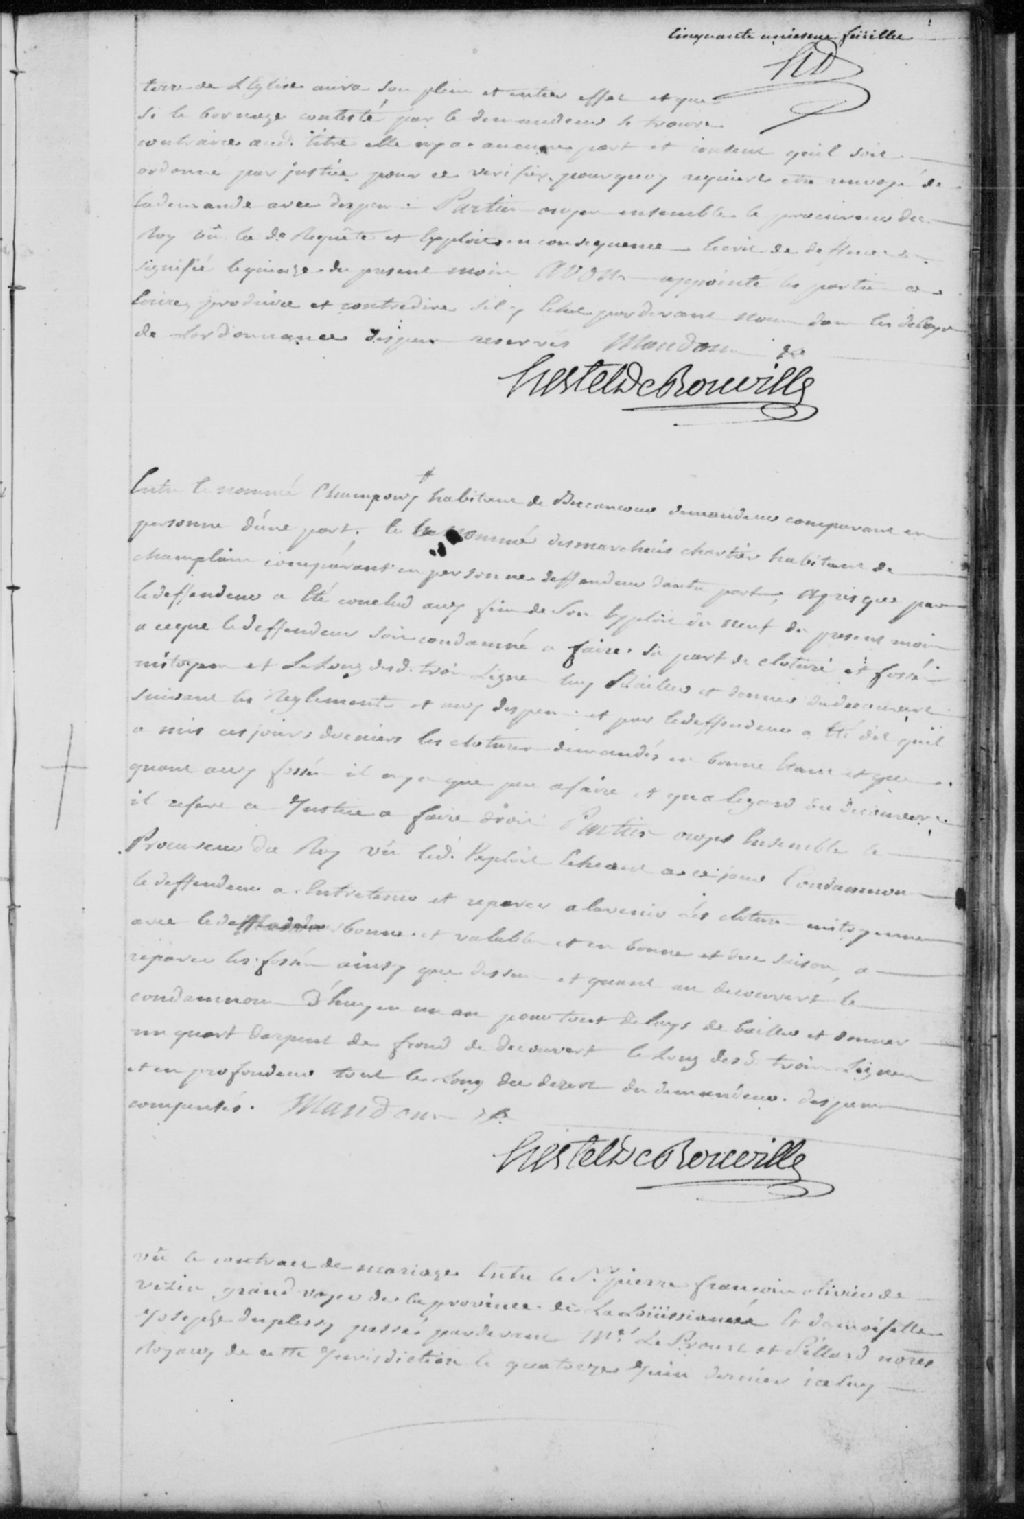 Cinquante unieme feuillet
HD
terre de l'Eglise aura son plein et entier effet et que
si le bornage contesté par le demandeur se trouve
contraire aud. titre elle n'y a aucune part et consent qu'il soit
ordonné par justice pour ce verifier, pourquoy requiert etre renvoyé de
la demande avec depens Parties ouyes ensemble le procureur du
Roy vû les de Requête et Exploit en consequence lecrit de deffences
signifié le quinze du present mois Avons appointé les parties a
Ecrire, produire et contredire sil y Echet pardevant nous dans les delays
de Lordonnance depens reservés Mandons &a
hertel De Rouville
Entre le nommé Champoux habitant de Beccancour demandeur comparant en
personne d'une part, le nommé desmarchais chartier habitant de
champlain comparant en personne deffendeur dautre part, Apres que par
le deffendeur a Eté conclud aux fins de son Exploit du neuf du present mois
a ceque le deffendeur soit condamné a faire sa part de cloture et fossé
mitoyen et Le Long desd. trois Lignes luy Bailler et donner du decouvert
suivant les Reglements et aux depens et par le deffendeur a Eté dit quil
a mis ces jours derniers les clotures demandés en bonne Etat et que
quant aux fossés il n'y a que peu a faire et qua legard du decouvert
il refere a Justice a faire droit Parties ouyes Ensemble le
Procureur du Roy vû led. Exploit Echeant a ce jour Condamnons
le deffendeur a Entretenir et reparer alavenir les cloture mitoyenne
avec le bonne et valable et en bonne et due saison, a
reparer les fossés ainsy que dessus et quant au decouvert le
condamnons D'huy en un an pour tout delays de bailler et donner
un quart darpent de front de decouvert le Long desd. trois Lignes
et en profondeur tout le Long du desert du demandeur. depens
compensés. Mandons &a.
hertel De Rouville
vû le contract de mariage Entre le Sr. pierre françois olivier de
vezin grand voyer de la province de La Loüissianne Et demoiselle
Josephe duplessy passé pardevant Mes. Le Proust et Pillard nores
Royaux de cette Jurisdiction le quatorze Juin dernier icelluy